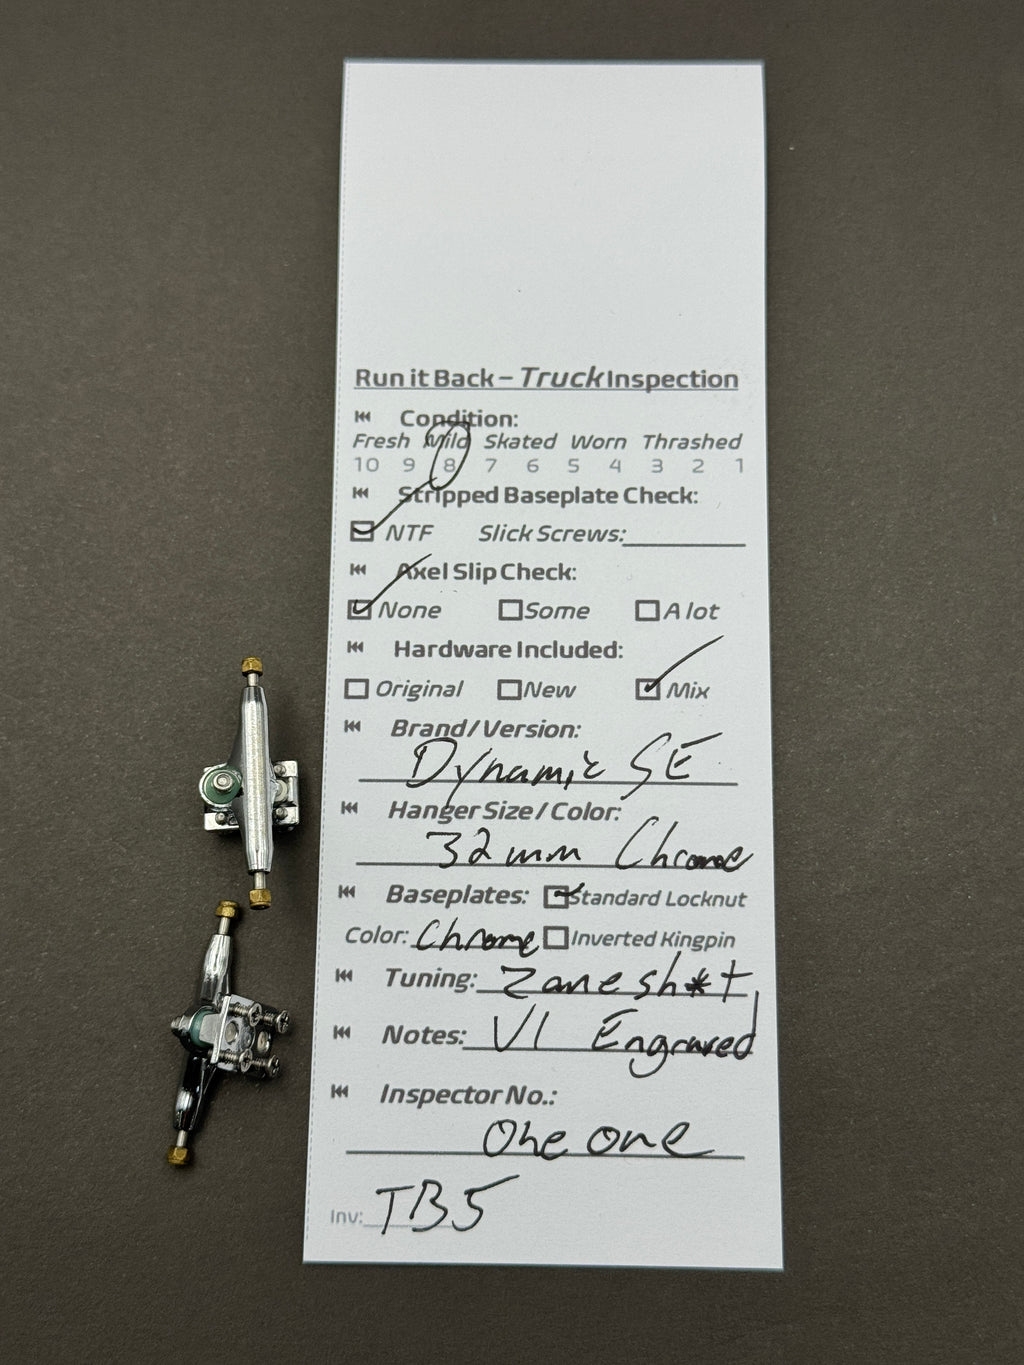 Run it Back – Truck Inspection
Condition:
Fresh Mild Skated Worn Thrashed
10 9 8 7 6 5 4 3 2 1
Stripped Baseplate Check:
NTF Slick Screws:
Axel Slip Check:
None Some A lot
Hardware Included:
Original New Mix
Brand/Version:
Dynamic SE
Hanger Size/Color:
32mm Chrome
Baseplates: Standard Locknut
Color: Chrome Inverted Kingpin
Tuning: Zane sh*t
Notes: V1 Engraved
Inspector No.:
One one
Inv: TB5